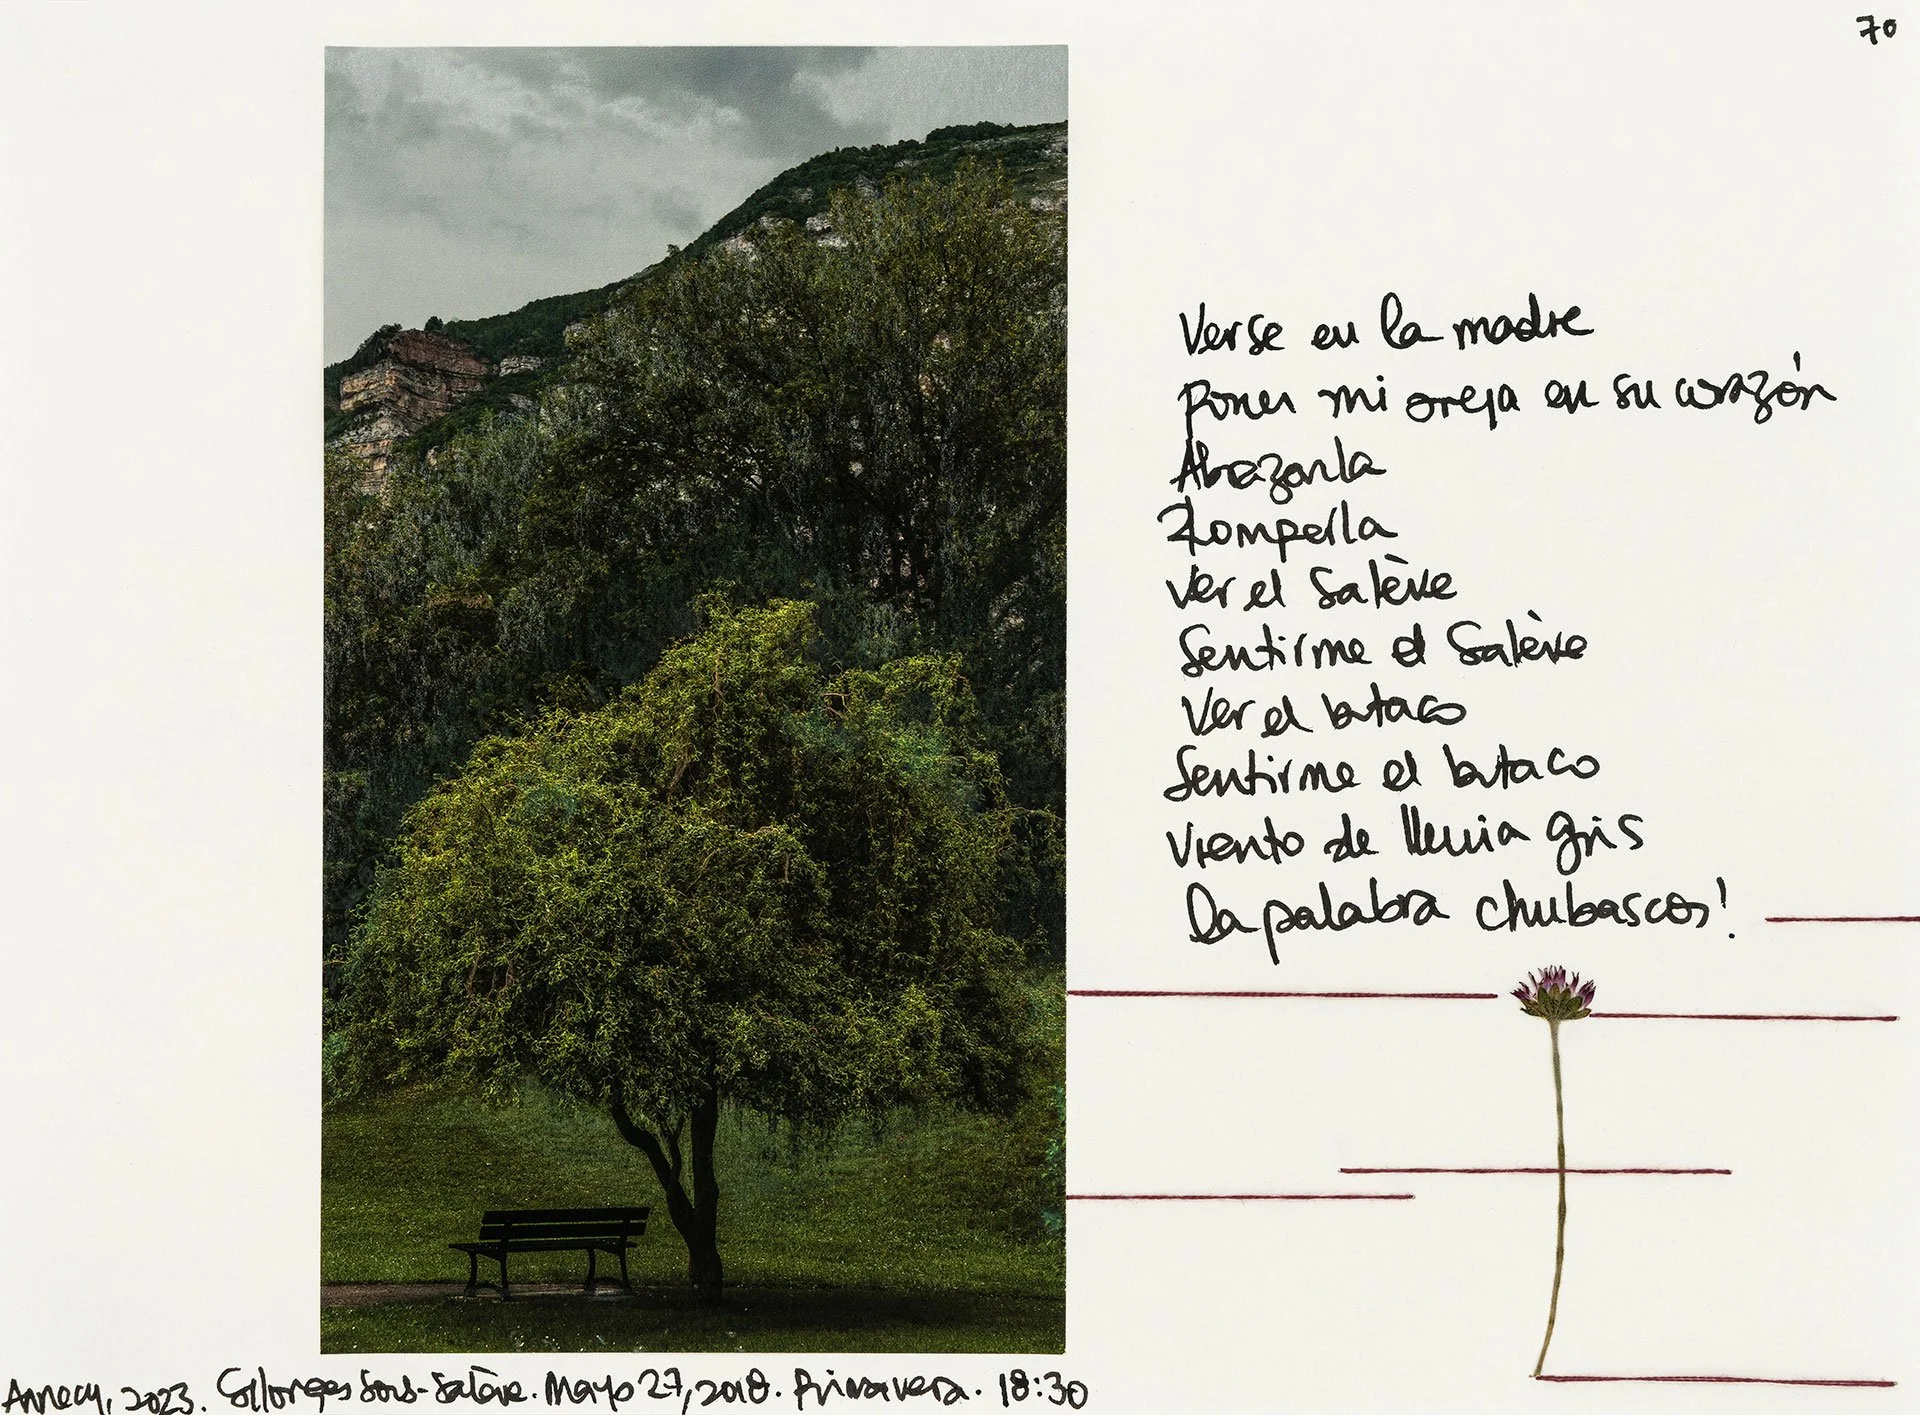 70
Verse en la madre
Poner mi oreja en su corazón
Abrazarla
Romperla
Ver el Salève
Sentirme el Salève
Ver el butaco
Sentirme el butaco
Viento de lluvia gris
La palabra chubascos!
Annecy, 2023. Collonges Sous-Salève. Mayo 27, 2018. Primavera. 18:30